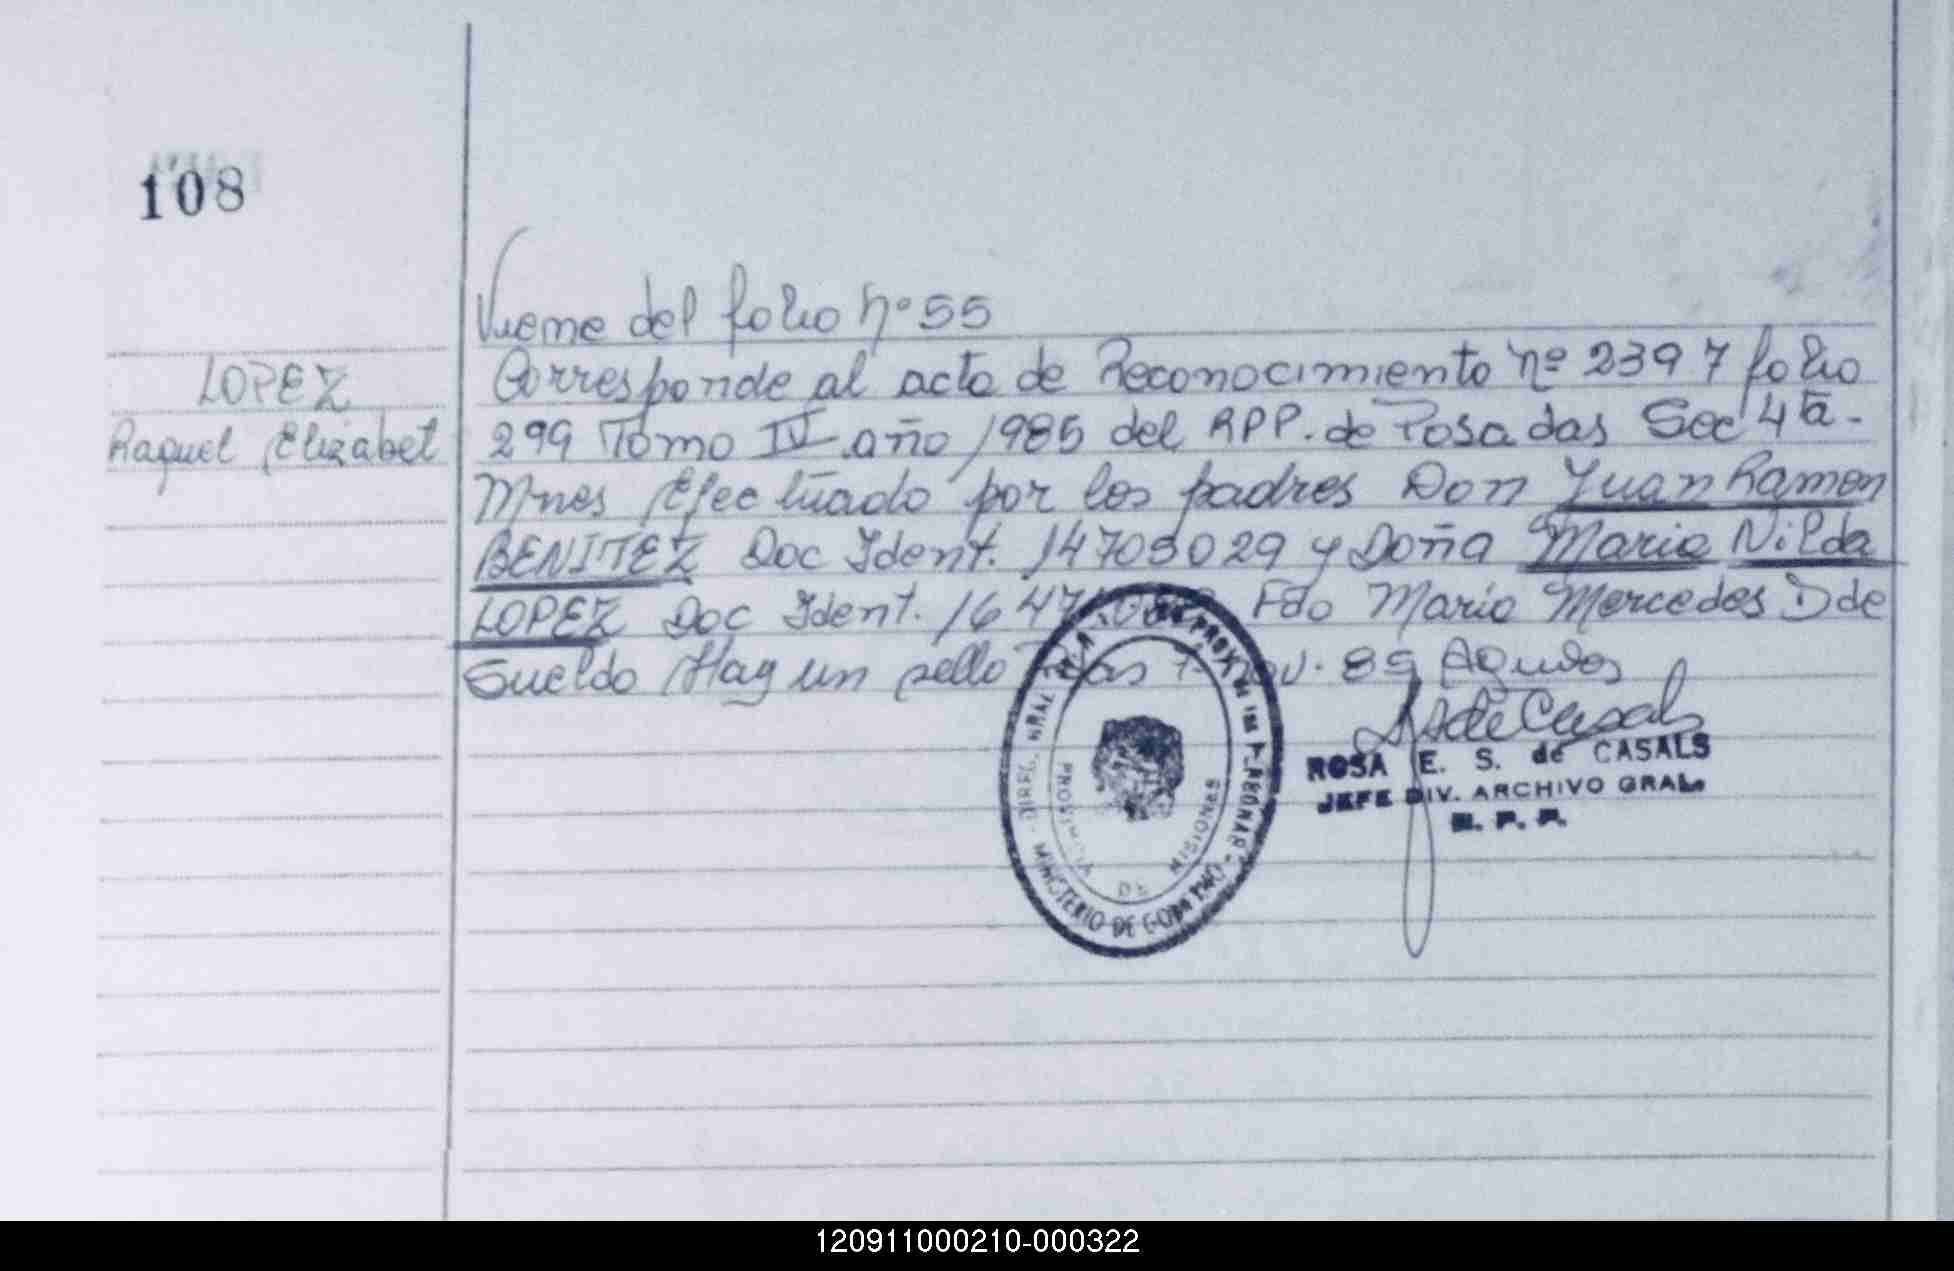 108
Viene del folio Nº 55
LOPEZ
Corresponde al acta de Reconocimiento Nº 2397 folio
Raquel Elizabet
299 Tomo IV año 1985 del RPP. de Posadas Sec 4ta-
Mnes Efectuado por los padres Don Juan Ramon
BENITEZ Doc Ident. 14705029 y Doña Maria Nilda
LOPEZ Doc Ident. Fdo Maria Mercedes D de
Sueldo Hay un sello 
ROSA E. S. de CASALS
JEFE DIV. ARCHIVO GRAL.
R. P. P.
PROVINCIA DE MISIONES
MINISTERIO DE GOBIERNO
120911000210-000322